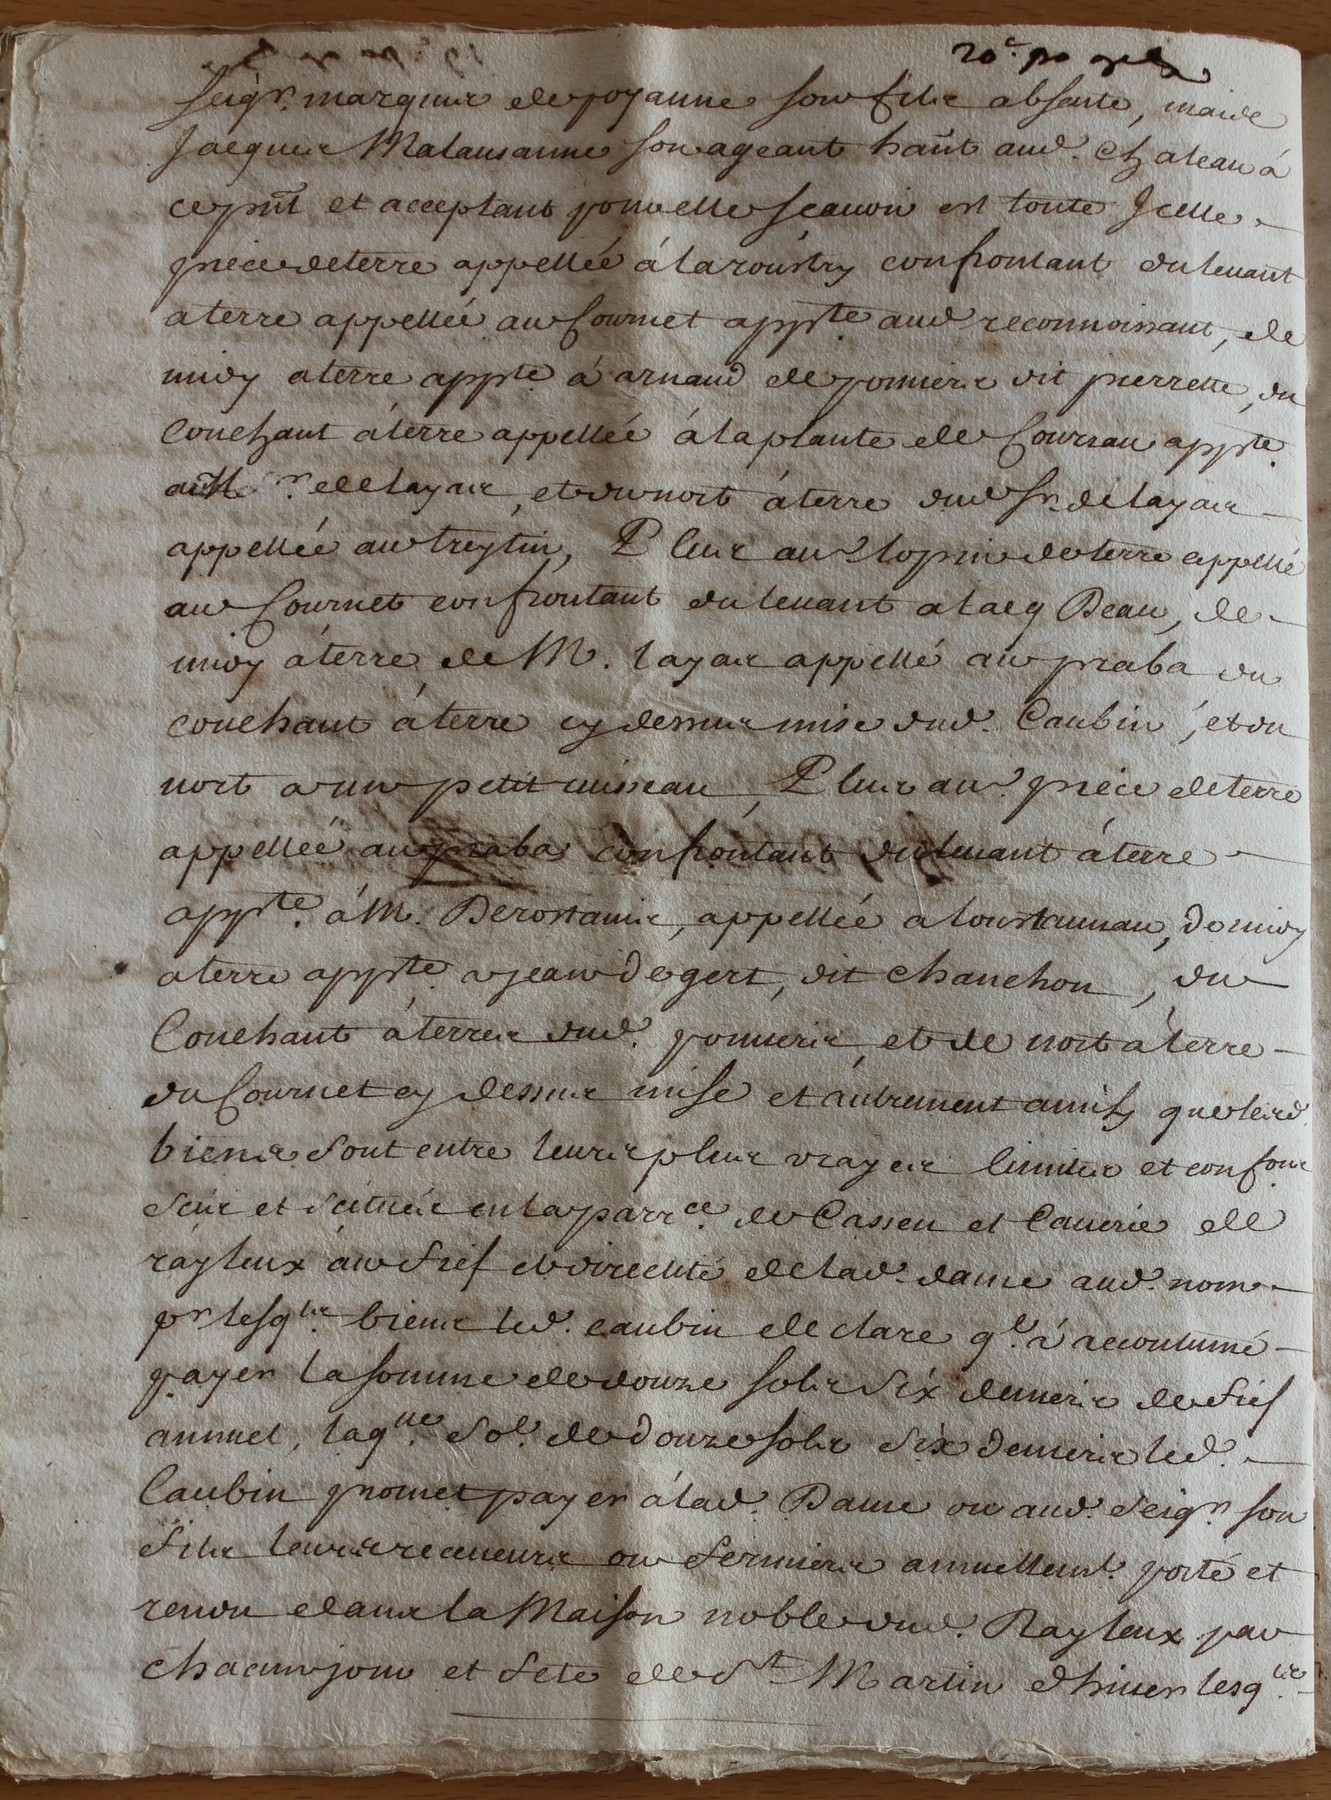 20e po
seigr. marquis de poyanne son fils absante, mais de
Jacques Malausanne son ageant hañt aud. chateau à
ce pñt et acceptant pour elle scauoir est toute Jcelle
piece de terre appellée á laroustey confrontant du leuant
a terre appellée au Cournet appte aud reconnoissant, de
midy a terre appte á arnaud de pomiers dit pierrette, du
Couchant á terre appellée á la plante de Coursau appte.
a M. r. de layas, et du nort á terre dud sr. de layas
appellée au treytin, Plus au. lopin de terre appellé
au Cournet confrontant du leuant a lacq Beau, de
midy á terre de M. layas appellé au praba du
couchant á terre cy dessus mise dud. Caubin, et du
nort a un petit ruisseau, Plus au. piece de terre
appellée au praba confrontant du leuant á terre
appte. á M. Derostamis, appellée a loustaunau, de midy
a terre appte. a jean degert, dit chanchon, du
Couchant á terres dud. pomiers, et de nort á terre
du Cournet cy dessus mise et autrement ainsy que lesd.
biens sont entre leurs plus vrayes limites et confons
scis et scitués en la parrce. de Cassen et Cauerie de
raysleux au fief et directité de lad. dame aud. nom
pr lesqls. biens led. caubin declare ql. á accoutumé
payer la somme de douze sols six deniers de fief
annuel, laqlle. soe. de douze sols six deniers led.
Caubin promet payer á lad. Dame ou aud. seigr son
fils leurs receueurs ou fermiers annuellemt. porté et
rendu dans la Maison noble dud. Raysleux par
chacun jour et fete de St Martin dhiuer lesqls.